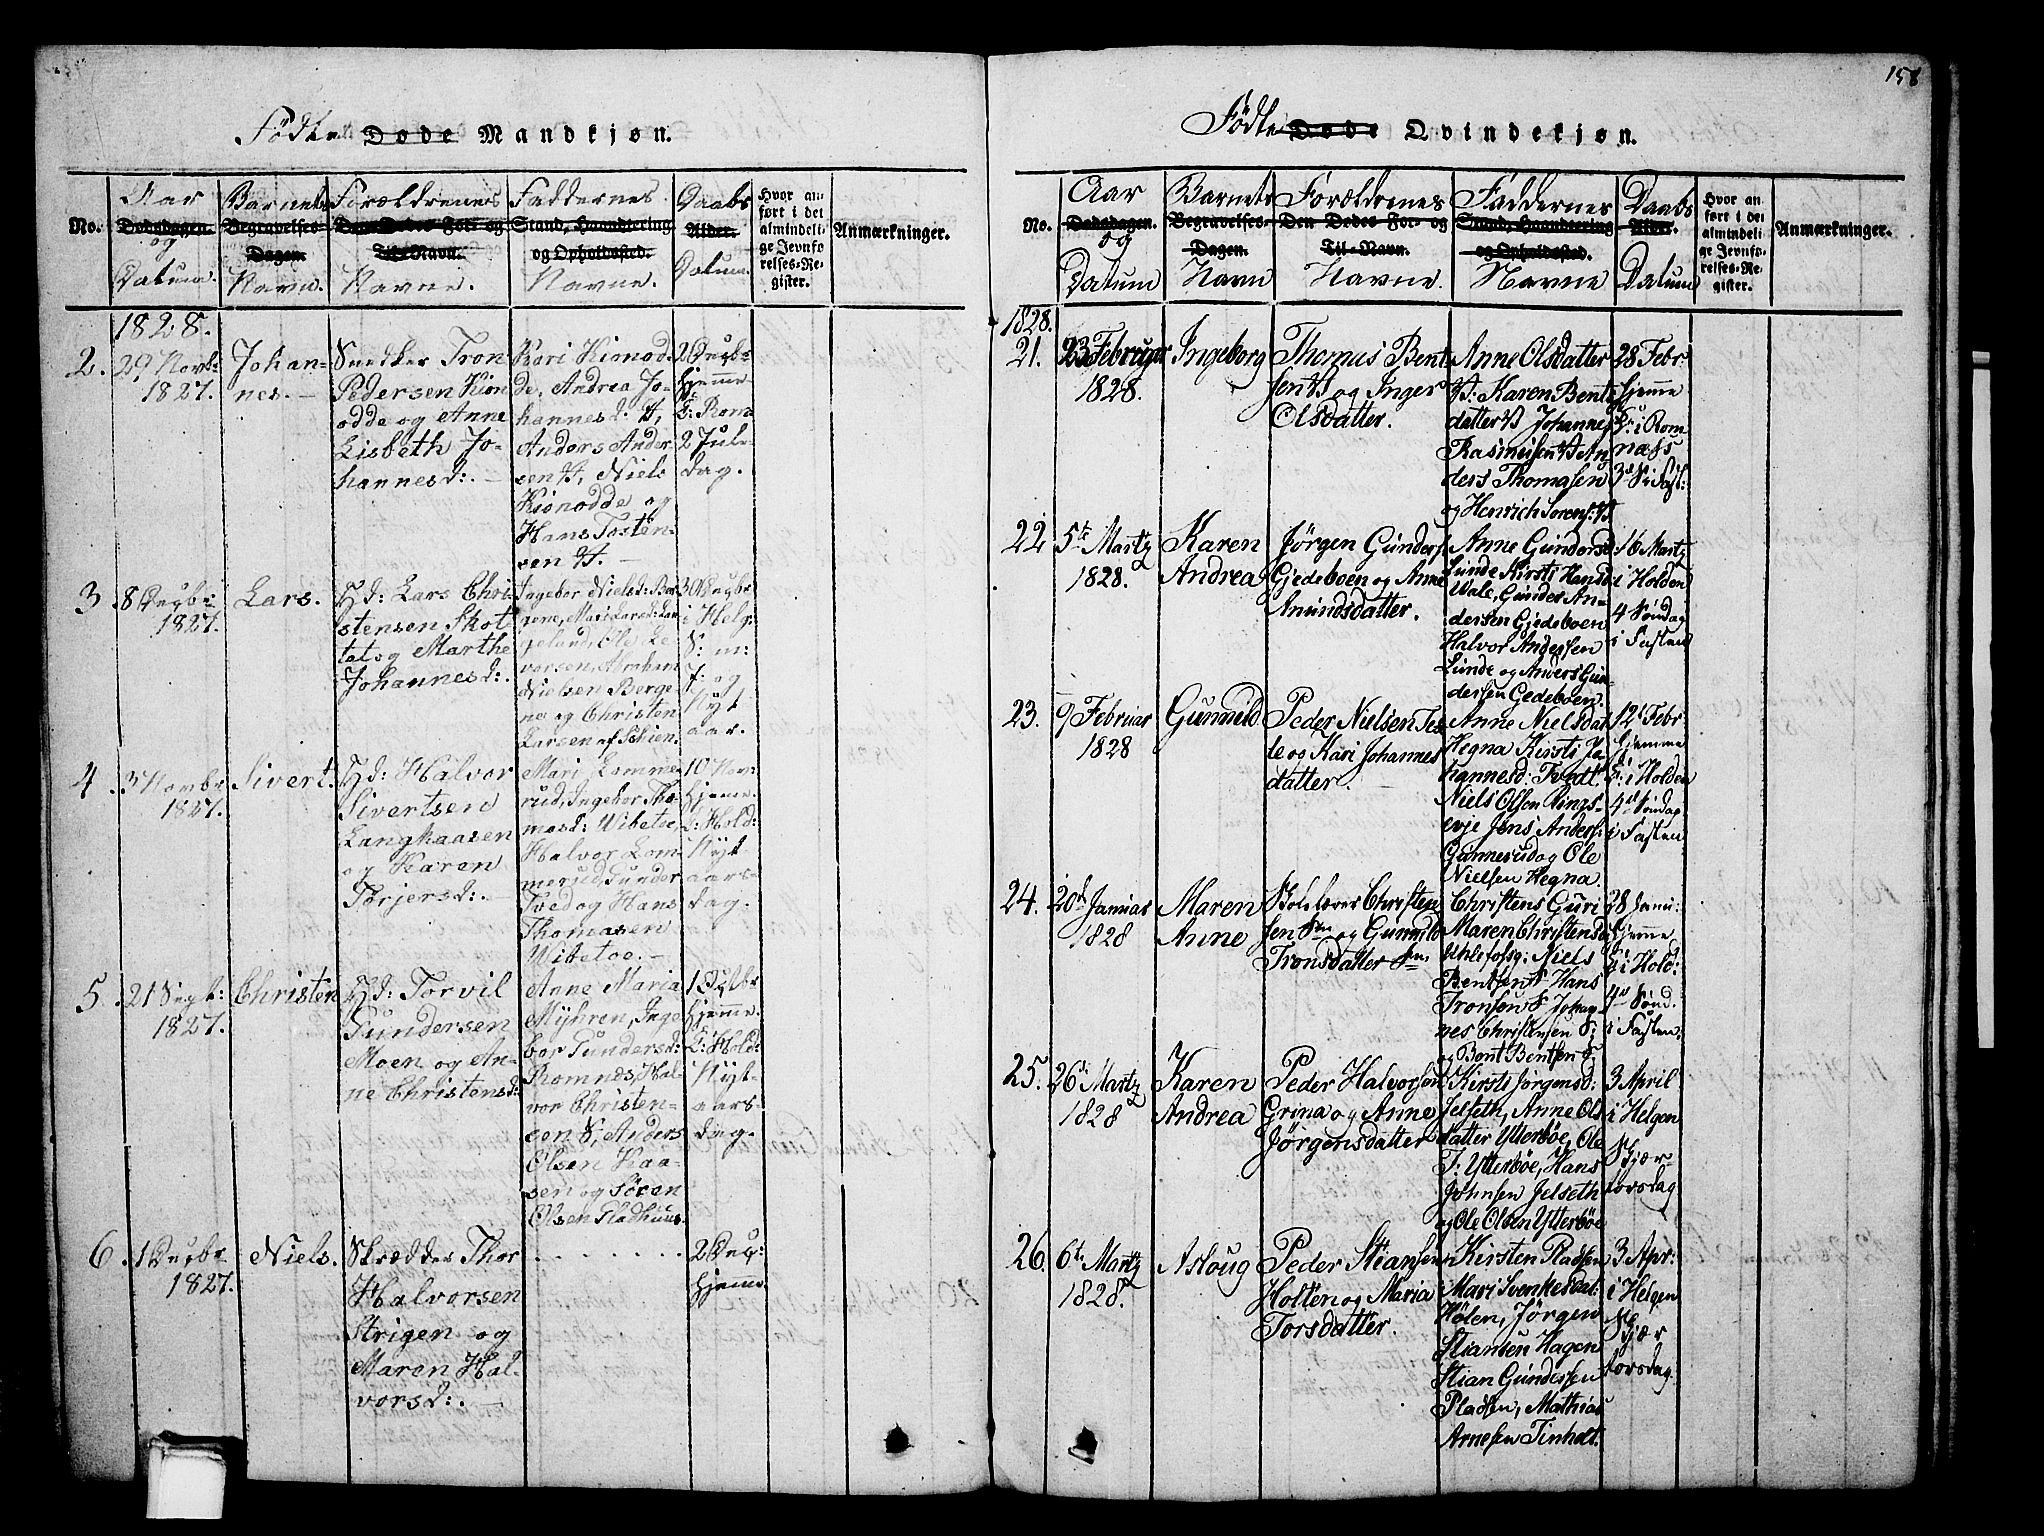 158
Fødte Døde Mandkjøn.
No.
Aar
Dødsdagen.
og
Datum.
Barnets
Begravelses-
Dagen.
Navn.
Forældrenes
Den Dødes For- og
Til-Navn.
Navne.
Faddernes
Stand, Haandtering
og Opholdssted.
Navne.
Daabs
Alder.
Datum.
Hvor an-
ført i det
almindeli-
ge Jevnfø-
relses-Re-
gister.
Anmærkninger.
1828.
2.
29 Novbr
1827.
Johan-
nes. –
Snedker Tron
Pedersen Kion
odde og Anne
Lisbeth Jo-
hannesd:. –
Kari Kionod-
de, Andrea Jo-
hannesd:
Anders Ander
sen, Niels
Kionodde og
Hans Tosten-
sen
2 Decbr
hjemme
Rom
2 Jule
dag.
3.
8 Decbr
1827.
Lars.
Lars Chri
stensen Skot
tet og Marthe
Johannesd:.
Ingebor Nielsd: Ber
gene, Mari Larsd: Lan
geland, Ole Le
vorsen, Abraham
Nielsen Berge-
ne og Christen
Larsen af Schien.
30 Decbr
i Helg:
S: m:
J: og
Nyt
aar.
4.
3 Novbr
1827.
Sivert.
Halvor
Sivertsen
Langkaasen
og Karen
Torjersd:.
Mari Lomme
rud, Ingebor Tho
masd: Wibetoe,
Halvor Lom-
merud, Gunder
Tved og Hans
Thomasen
Wibetoe. –
10 Nov:
hjeme.
Hold:
Nyt
aars-
dag.
5.
21 Sept:
1827.
Christen
Torvil
Gundersen
Moen og An-
ne Christensd:
Anne Maria
Myhren, Inge
bor Gundersd:
Romnes, Hal-
vor Christen-
sen S, Anders
Olsen Kaa-
sen og Søren
Olsen Gladhuus.
1 Octbr
hjemme.
Hold:
Nyt-
aars-
dag.
6.
1 Decbr
1827.
Niels.
Skrædder Thor
Halvorsen
Strigen og
Maren Hal-
vorsd:. –
. . . . . . .
2 Dec:
hjeme
Fødte Døde Qvindekjøn.
No.
Aar
Dødsdagen.
og
Datum
Barnets
Begravelses-
Dagen.
Navn
Forældrenes
Den Dødes For- og
Til-Navn.
Navne.
Faddernes
Stand, Haandtering
og Opholdssted.
Navne
Daabs
Alder.
Datum
Hvor an-
ført i det
almindeli-
ge Jevnfø-
relses-Re-
gister.
Anmærkninger.
1828.
21.
23 Februar
1828.
Ingeborg
Thomas Bent
sen og Inger
Olsdatter.
Anne Olsdatter
Karen Bents
datter Johannes
Rasmussen An
ders Thomasen
og Henrich Sorens:
28 Febr
hjemme
i Rom
næs
3 S i Fast:
22
5te Martz
1828.
Karen
Andrea
Jørgen Gunders
Gjedeboen og Anne
Amundsdatter.
Anne Gundersd
Lunde Kirsti Hansd
Wale, Gunder An-
dersen Gjedeboen
Halvor Andersen
Lunde og Anders Gun
dersen Gedeboen.
16 Martz
i Holden
4 Søndag
i Fasten
23.
9 Februar
1828
Gunnild
Peder Nielsen Tes
le og Kari Johannes
datter.
Anne Nielsdat
Hegna Kirsti Jo
hannesd: Tvedt
Niels Olsen Rings-
evje Jens Anders:
Gunnerud og Ole
Nielsen Hegna.
12 Febr
hjemme
i Holden
4 Søndag
i Fasten
24.
20de Januar
1828
Maren
Anne
Christen
sen og Gunnild
Tronsdatter
Christens Guri
Maren Christensd
Uhlefosg: Niels
Bentsen S Hans
Tronsen S Johan
nes Christensen S:
og Bent Bentsen S
28 Janu:
hjemme
i Hold:
4 Sønd.
i Fasten.
25.
26de Martz
1828
Karen
Andrea
Peder Halvorsen
Grina og Anne
Jørgensdatter
Kirsti Jørgensd:
Jelseth, Anne Ols
datter Ytterbøe, Ole
T: Ytterbøe, Hans
Johnsen Jelseth
og Ole Olsen Ytterbøe
3 April
i Helgen
Skjær-
torsdag
26
6te Martz
1828.
Asloug
Peder Stiansen
Holten og Maria
Torsdatter.
Kirsten Pladsen
Mari Svenkesdat:
Hølen, Jørgen
Stiansen Hagen
Stian Gundersen
Pladsen, Mathias
Arnesen Tinholt.
3 Apr:
i Helgen
Skjær
torsdag